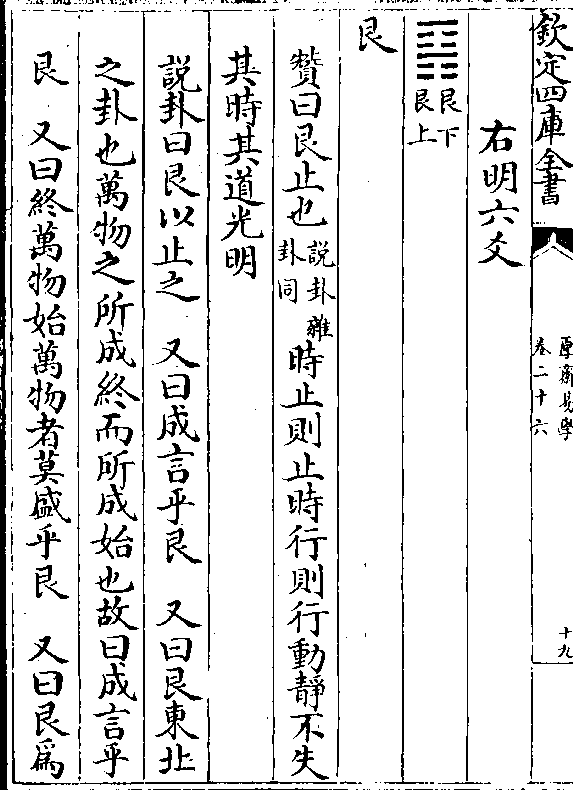 欽定四庫全書
厚齋易學
卷二十六
十九
右明六爻
䷳
艮下
艮上
艮
贊曰艮止也說卦雜卦同時止則止時行則行動靜不失
其時其道光明
說卦曰艮以止之　又曰成言乎艮　又曰艮東北
之卦也萬物之所成終而所成始也故曰成言乎
艮　又曰終萬物始萬物者莫盛乎艮　又曰艮爲